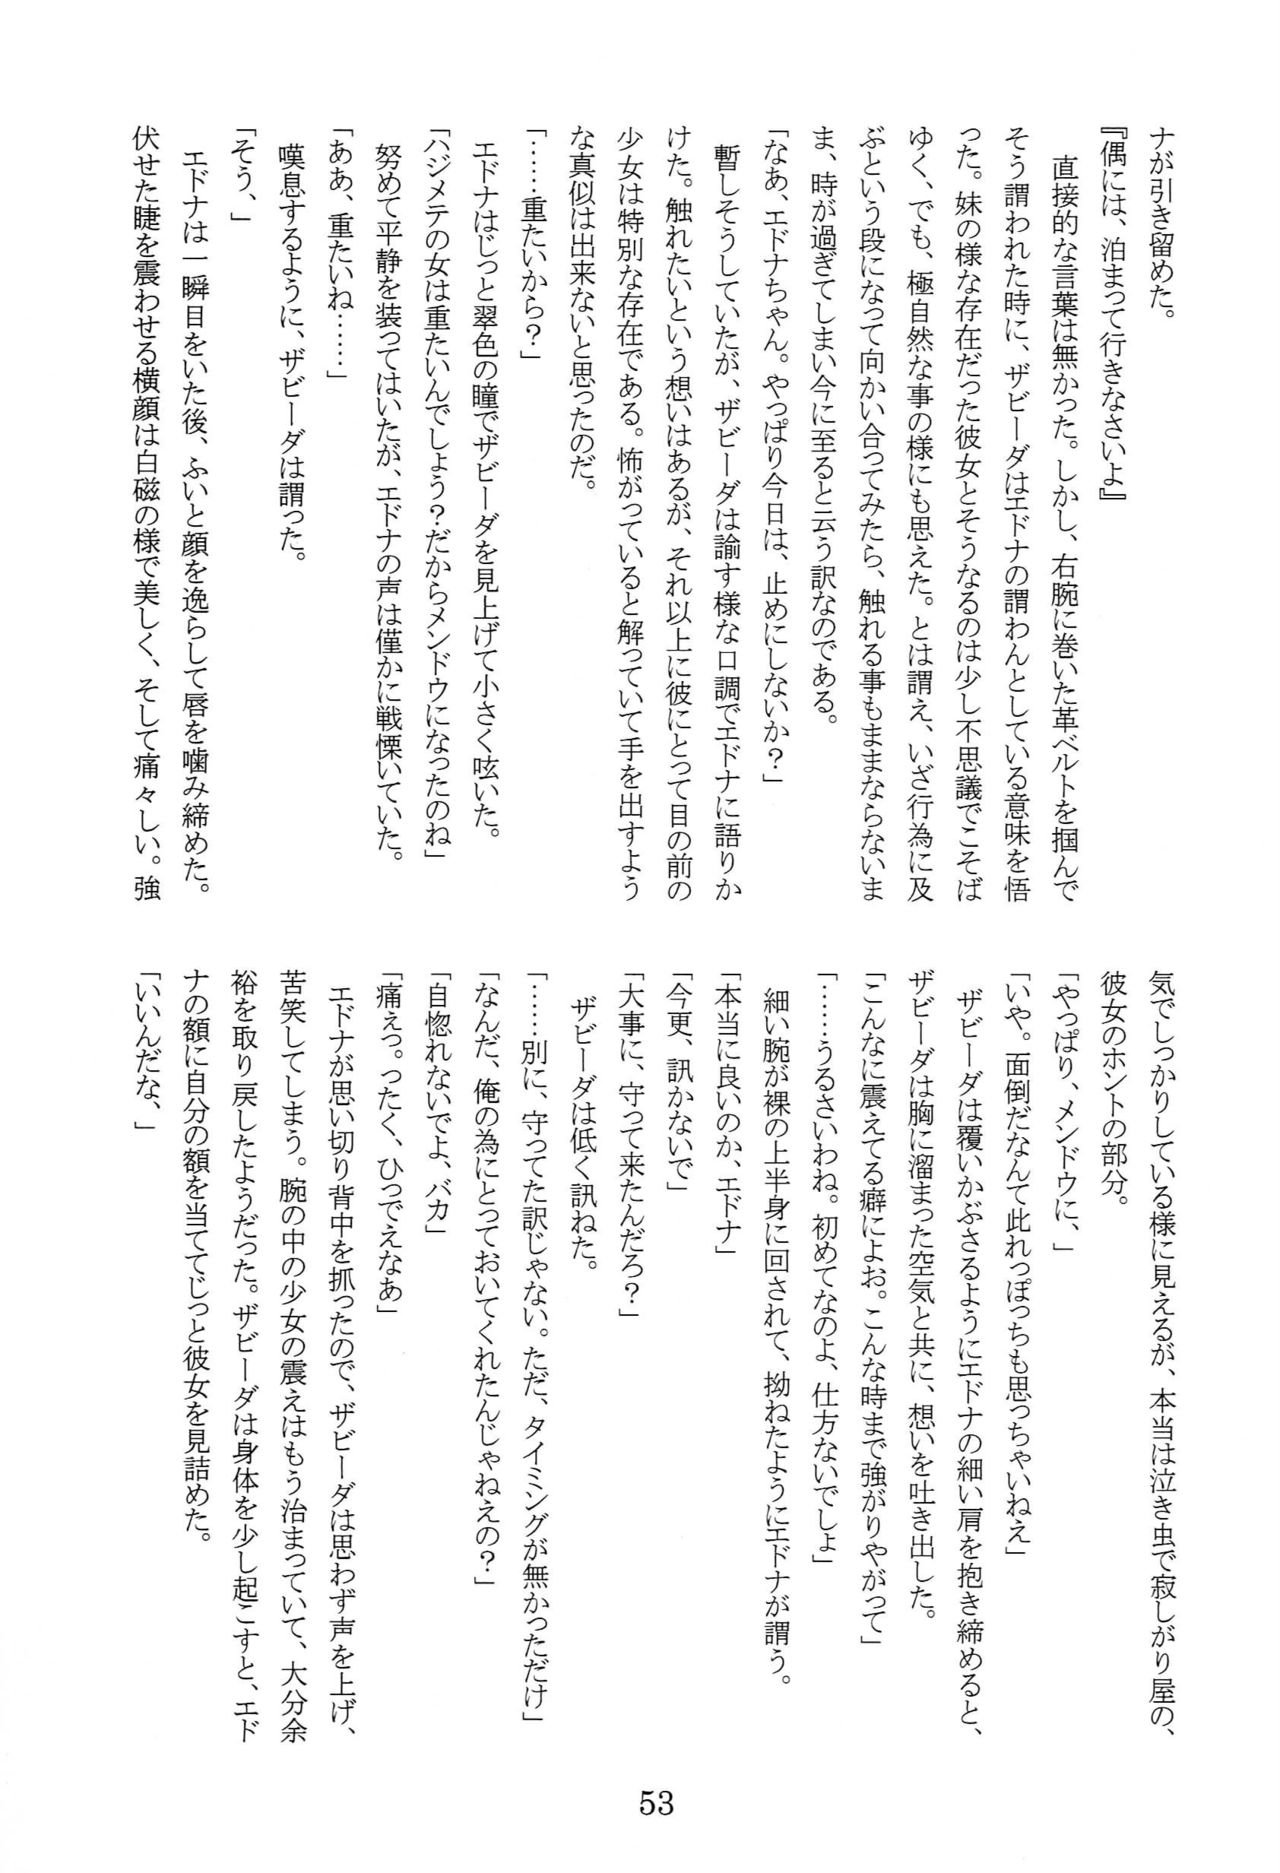 ナが引き留めた。
『偶には、泊まって行きなさいよ』
　直接的な言葉は無かった。しかし、右腕に巻いた革ベルトを掴んで
そう謂われた時に、ザビーダはエドナの謂わんとしている意味を悟
った。妹の様な存在だった彼女とそうなるのは少し不思議でこそば
ゆく、でも、極自然な事の様にも思えた。とは謂え、いざ行為に及
ぶという段になって向かい合ってみたら、触れる事もままならないま
ま、時が過ぎてしまい今に至ると云う訳なのである。
「なあ、エドナちゃん。やっぱり今日は、止めにしないか？」
　暫しそうしていたが、ザビーダは諭す様な口調でエドナに語りか
けた。触れたいという想いはあるが、それ以上に彼にとって目の前の
少女は特別な存在である。怖がっていると解っていて手を出すよう
な真似は出来ないと思ったのだ。
「……重たいから？」
　エドナはじっと翠色の瞳でザビーダを見上げて小さく呟いた。
「ハジメテの女は重たいんでしょう？だからメンドウになったのね」
　努めて平静を装ってはいたが、エドナの声は僅かに戦慄いていた。
「ああ、重たいね……」
　嘆息するように、ザビーダは謂った。
「そう、」
　エドナは一瞬目をいた後、ふいと顔を逸らして唇を噛み締めた。
伏せた睫を震わせる横顔は白磁の様で美しく、そして痛々しい。強
気でしっかりしている様に見えるが、本当は泣き虫で寂しがり屋の、
彼女のホントの部分。
「やっぱり、メンドウに、」
「いや。面倒だなんて此れっぽっちも思っちゃいねえ」
　ザビーダは覆いかぶさるようにエドナの細い肩を抱き締めると、
ザビーダは胸に溜まった空気と共に、想いを吐き出した。
「こんなに震えてる癖によお。こんな時まで強がりやがって」
「……うるさいわね。初めてなのよ、仕方ないでしょ」
　細い腕が裸の上半身に回されて、拗ねたようにエドナが謂う。
「本当に良いのか、エドナ」
「今更、訊かないで」
「大事に、守って来たんだろ？」
　ザビーダは低く訊ねた。
「……別に、守ってた訳じゃない。ただ、タイミングが無かっただけ」
「なんだ、俺の為にとっておいてくれたんじゃねえの？」
「自惚れないでよ、バカ」
「痛ぇっ。ったく、ひっでえなあ」
　エドナが思い切り背中を抓ったので、ザビーダは思わず声を上げ、
苦笑してしまう。腕の中の少女の震えはもう治まっていて、大分余
裕を取り戻したようだった。ザビーダは身体を少し起こすと、エド
ナの額に自分の額を当ててじっと彼女を見詰めた。
「いいんだな、」
53